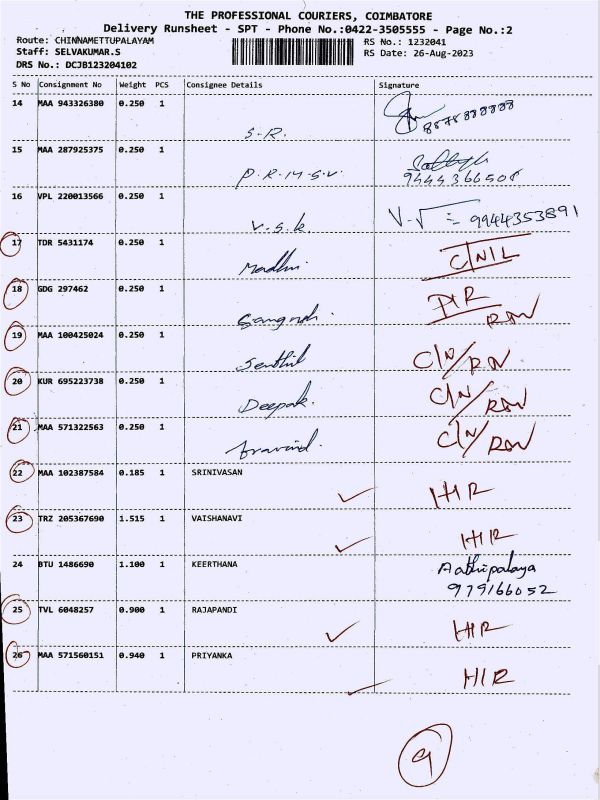 THE PROFESSIONAL COURIERS, COIMBATORE
Delivery Runsheet - SPT - Phone No.:0422-3505555 - Page No.:2
Route: CHINNAMETTUPALAYAM
RS No.: 1232041
Staff: SELVAKUMAR.S
RS Date: 26-Aug-2023
DRS No.: DCJB123204102
S No Consignment No Weight PCS Consignee Details Signature
14 MAA 943326380 0.250 1 S-R.
15 MAA 287925375 0.250 1
9444366508
16 VPL 220013566 0.250 1 V.S.K. 9944353891
17 TDR 5431174 0.250 1 Madhu
18 GDG 297462 0.250 1
19 MAA 100425024 0.250 1 Senthil C/N/RSN
20 KUR 695223738 0.250 1 Deepak. C/N/RSN
21 MAA 571322563 0.250 1 Aravind. C/N/RSN
22 MAA 102387584 0.185 1 SRINIVASAN HR
23 TRZ 205367690 1.515 1 VAISHANAVI HR
24 BTU 1486690 1.100 1 KEERTHANA Aathipalaya
979166052
25 TVL 6048257 0.900 1 RAJAPANDI HR
26 MAA 571560151 0.940 1 PRIYANKA HR
9